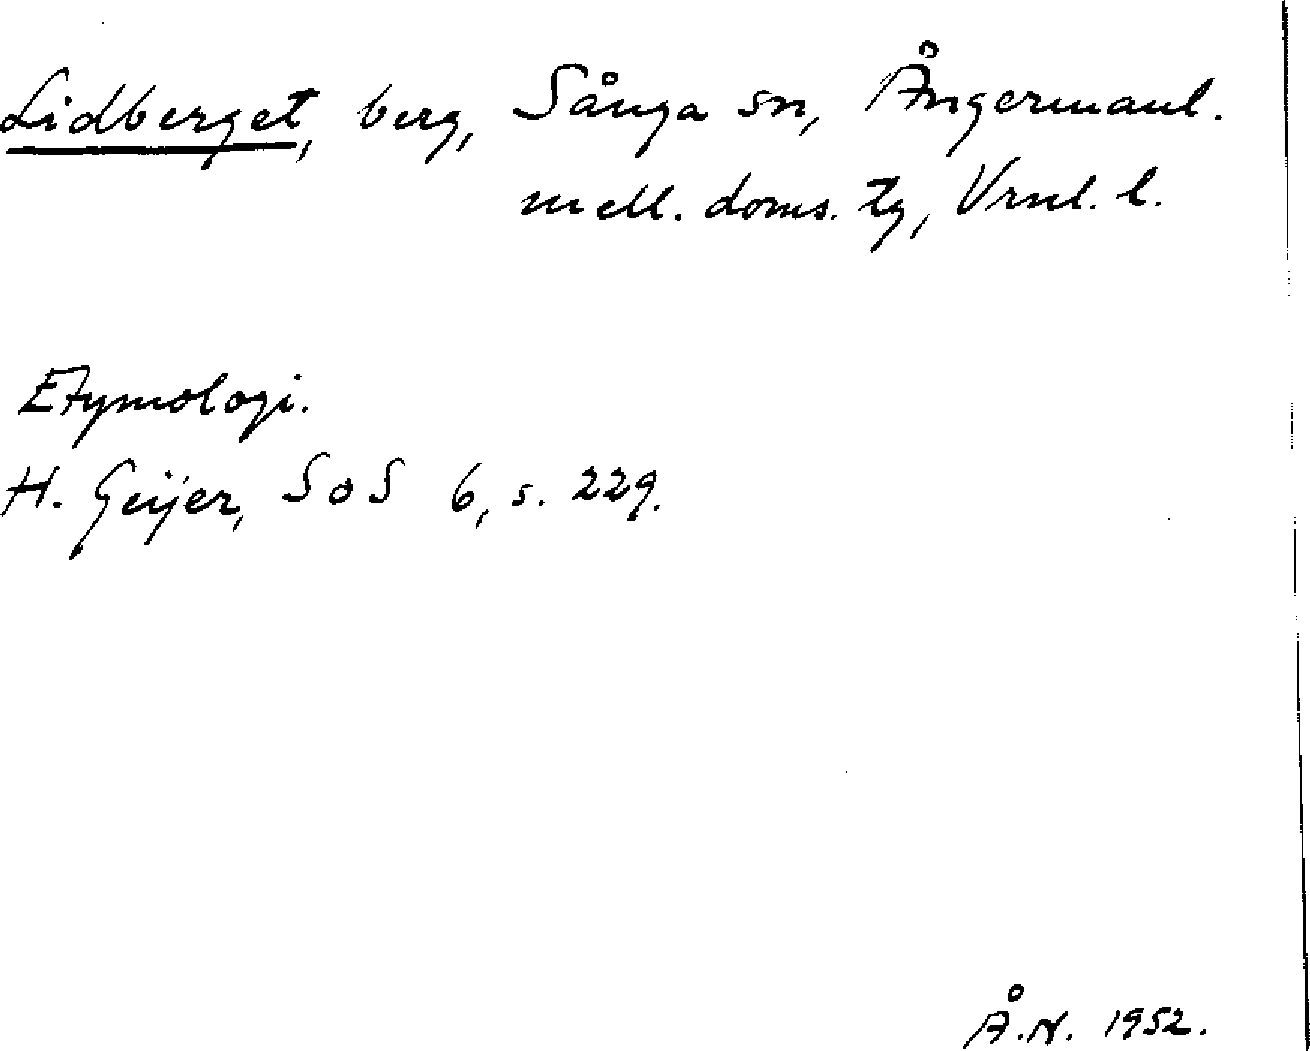 Lidberget, berg, Sånga sn, Ångermanl.
mell. doms. tg, Vrnl. l.
Etymologi.
H. Geijer, SoS 6, s. 229.
Å.N. 1952.